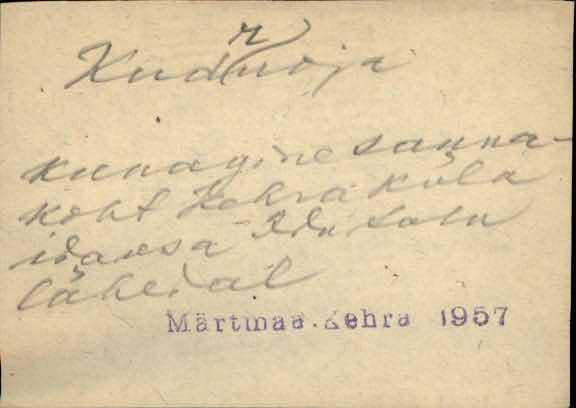 Kudruoja
kunagine sauna-
koht Kehra küla
idaosa Idu talu
lähedal
Märtmaa. Kehra 1957